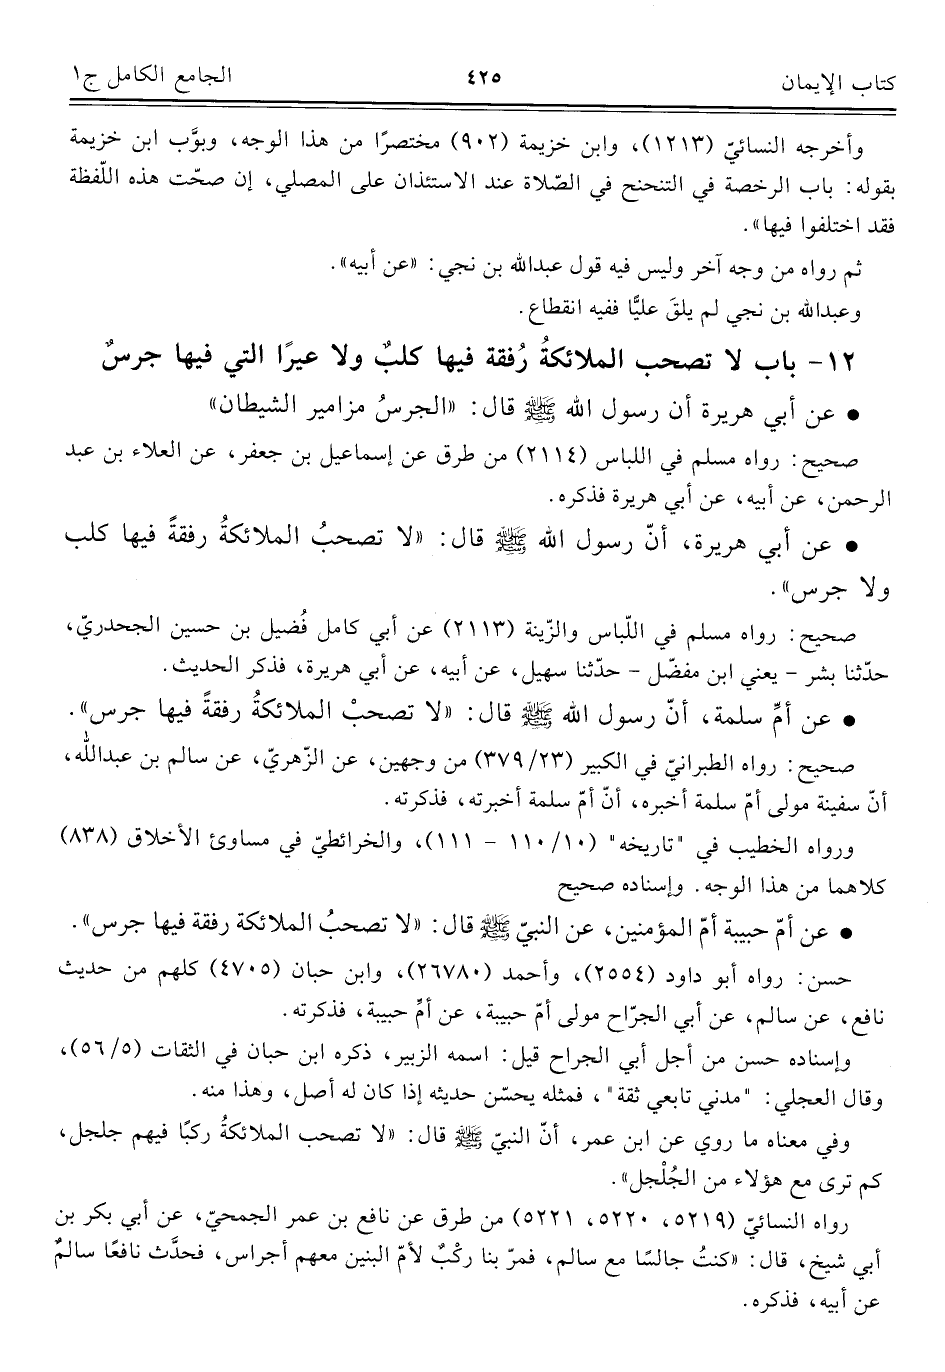 كتاب الإيمان ٤٢٥ الجامع الكامل ج١
وأخرجه النسائيّ (١٢١٣)، وابن خزيمة (٩٠٢) مختصرًا من هذا الوجه، وبوَّب ابن خزيمة
بقوله: باب الرخصة في التنحنح في الصّلاة عند الاستئذان على المصلي، إن صحّت هذه اللّفظة
فقد اختلفوا فيها».
ثم رواه من وجه آخر وليس فيه قول عبدالله بن نجي: «عن أبيه».
وعبدالله بن نجي لم يلقَ عليًّا ففيه انقطاع.
١٢- باب لا تصحب الملائكةُ رُفقة فيها كلبٌ ولا عيرًا التي فيها جرسٌ
• عن أبي هريرة أن رسول الله ﷺ قال: «الجرسُ مزامير الشيطان»
صحيح: رواه مسلم في اللباس (٢١١٤) من طرق عن إسماعيل بن جعفر، عن العلاء بن عبد
الرحمن، عن أبيه، عن أبي هريرة فذكره.
• عن أبي هريرة، أنّ رسول الله ﷺ قال: «لا تصحبُ الملائكةُ رفقةً فيها كلب
ولا جرس».
صحيح: رواه مسلم في اللّباس والزّينة (٢١١٣) عن أبي كامل فُضيل بن حسين الجحدريّ،
حدّثنا بشر - يعني ابن مفضّل - حدّثنا سهيل، عن أبيه، عن أبي هريرة، فذكر الحديث.
• عن أمِّ سلمة، أنّ رسول الله ﷺ قال: «لا تصحبْ الملائكةُ رفقةً فيها جرس».
صحيح: رواه الطبرانيّ في الكبير (٢٣/ ٣٧٩) من وجهين، عن الزّهريّ، عن سالم بن عبدالله،
أنّ سفينة مولى أمّ سلمة أخبره، أنّ أمّ سلمة أخبرته، فذكرته.
ورواه الخطيب في "تاريخه" (١٠/ ١١٠ - ١١١)، والخرائطيّ في مساوئ الأخلاق (٨٣٨)
كلاهما من هذا الوجه. وإسناده صحيح
• عن أمّ حبيبة أمّ المؤمنين، عن النبيّ ﷺ قال: «لا تصحبُ الملائكة رفقة فيها جرس».
حسن: رواه أبو داود (٢٥٥٤)، وأحمد (٢٦٧٨٠)، وابن حبان (٤٧٠٥) كلهم من حديث
نافع، عن سالم، عن أبي الجرّاح مولى أمّ حبيبة، عن أمِّ حبيبة، فذكرته.
وإسناده حسن من أجل أبي الجراح قيل: اسمه الزبير، ذكره ابن حبان في الثقات (٥/ ٥٦)،
وقال العجلي: "مدني تابعي ثقة"، فمثله يحسّن حديثه إذا كان له أصل، وهذا منه.
وفي معناه ما روي عن ابن عمر، أنّ النبيّ ﷺ قال: «لا تصحب الملائكةُ ركبًا فيهم جلجل،
كم ترى مع هؤلاء من الجُلْجل».
رواه النسائيّ (٥٢١٩، ٥٢٢٠، ٥٢٢١) من طرق عن نافع بن عمر الجمحيّ، عن أبي بكر بن
أبي شيخ، قال: «كنتُ جالسًا مع سالم، فمرّ بنا ركْبٌ لأمّ البنين معهم أجراس، فحدَّث نافعًا سالمٌ
عن أبيه، فذكره.